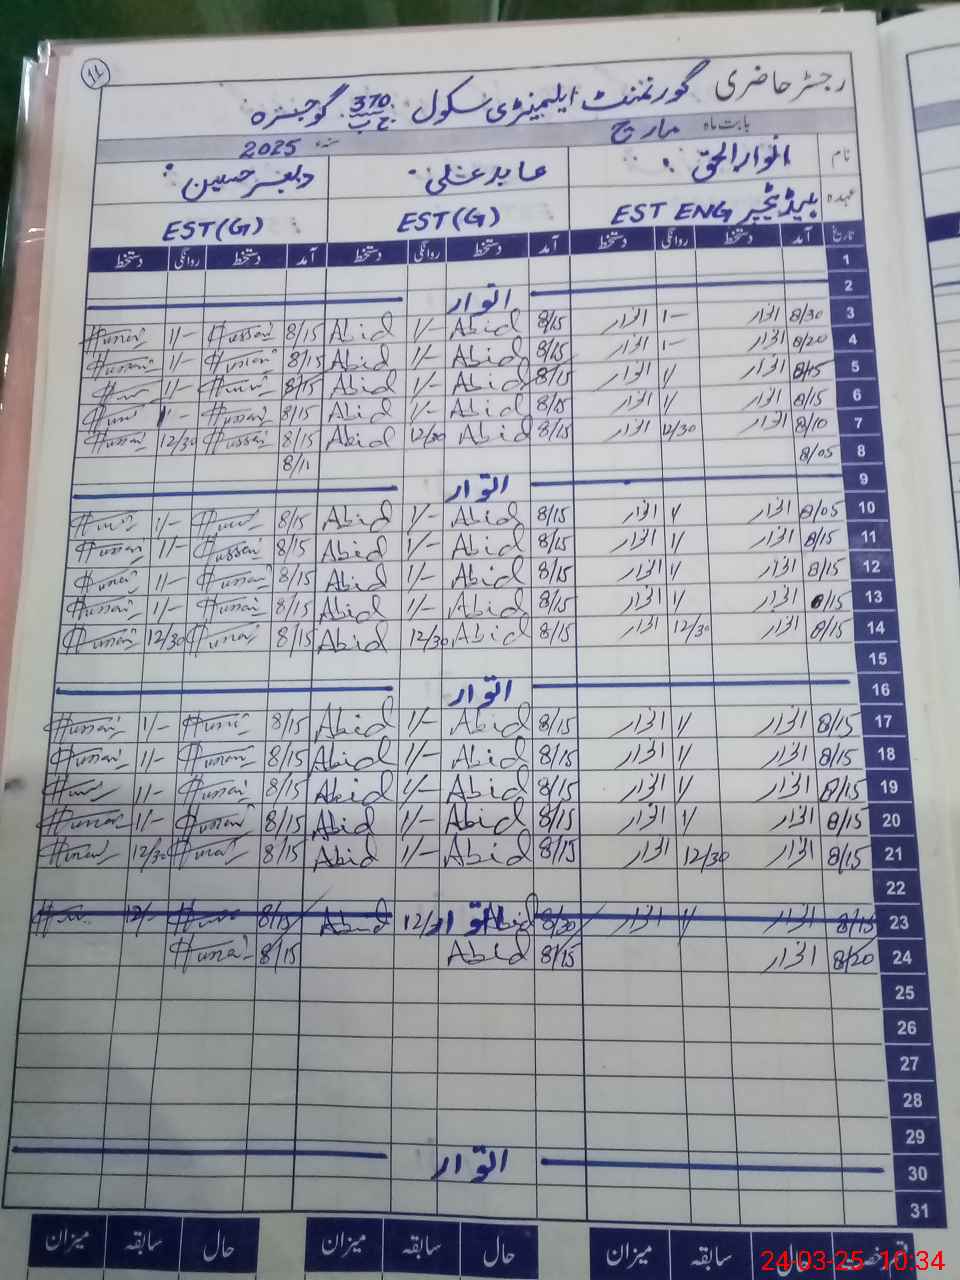 14
رجسٹر حاضری گورنمنٹ ایلیمنٹری سکول 370 ج ب گوجرہ
بابت ماہ مارچ سنہ 2025
نام انوار الحق عابد علی
عہدہ ہیڈ ٹیچر EST ENG EST (G) EST (G)
تاریخ آمد دستخط روانگی دستخط آمد دستخط روانگی دستخط آمد دستخط روانگی دستخط
1
2 اتوار
3 8/30 انوار 1- انوار 8/15 Abid 1/- Abid 8/15 Hussain 1/- Hussain
4 8/20 انوار 1- انوار 8/15 Abid 1/- Abid 8/15 Hussain 1/- Hussain
5 8/15 انوار 1/ انوار 8/15 Abid 1/- Abid 8/15 Hussain 1/-
6 8/15 انوار 1/ انوار 8/15 Abid 1/- Abid 8/15 Hussain 1/-
7 8/10 انوار 12/30 انوار 8/15 Abid 12/30 Abid 8/15 Hussain 12/30 Hussain
8 8/05 8/11
9 اتوار
10 8/05 انوار 1/ انوار 8/15 Abid 1/- Abid 8/15 1/-
11 8/15 انوار 1/ انوار 8/15 Abid 1/- Abid 8/15 Hussain 1/- Hussain
12 8/15 انوار 1/ انوار 8/15 Abid 1/- Abid 8/15 Hussain 1/- Hussain
13 8/15 انوار 1/ انوار 8/15 Abid 1/- Abid 8/15 Hussain 1/- Hussain
14 8/15 انوار 12/30 انوار 8/15 Abid 12/30 Abid 8/15 Hussain 12/30 Hussain
15
16 اتوار
17 8/15 انوار 1/ انوار 8/15 Abid 1/- Abid 8/15 Hussain 1/- Hussain
18 8/15 انوار 1/ انوار 8/15 Abid 1/- Abid 8/15 Hussain 1/- Hussain
19 8/15 انوار 1/ انوار 8/15 Abid 1/- Abid 8/15 Hussain 1/-
20 8/15 انوار 1/ انوار 8/15 Abid 1/- Abid 8/15 Hussain 1/- Hussain
21 8/15 انوار 12/30 انوار 8/15 Abid 1/- Abid 8/15 Hussain 12/30 Hussain
22
23 8/15 انوار 1/ انوار 8/30 Abid اتوار Abid 8/15 12/-
24 8/20 انوار 8/15 Abid 8/15 Hussain
25
26
27
28
29
30 اتوار
31
حال سابقہ میزان حال سابقہ میزان حال سابقہ میزان
24-03-25 10:34